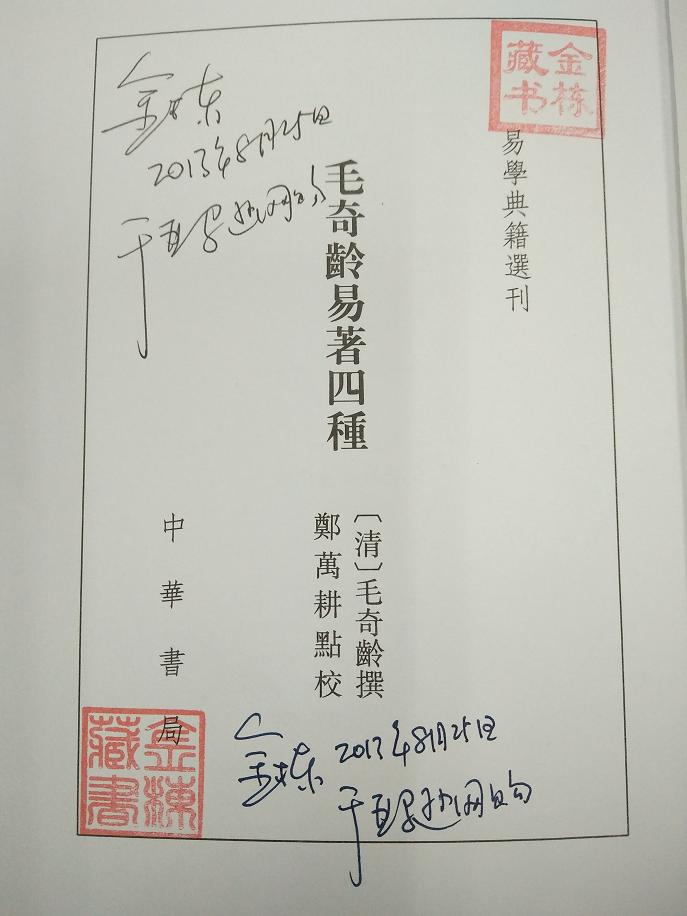 金栋
藏书
易學典籍選刊
金栋
2013年8月25日
于
网购
毛奇齡易著四種
〔清〕毛奇齡撰
鄭萬耕點校
中華書局
金栋
2013年8月25日
于
网购
金棟
藏書